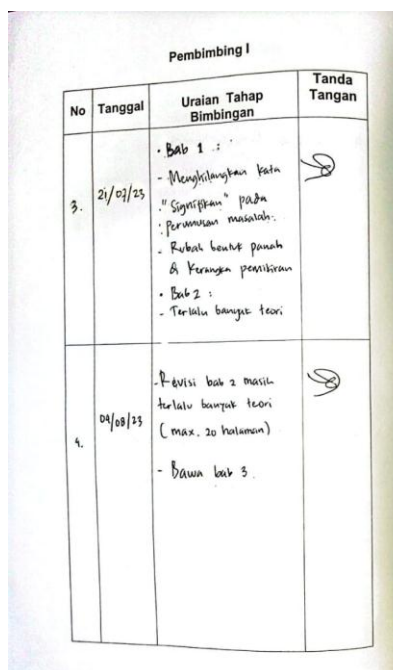 Pembimbing I
No
Tanggal
Uraian Tahap
Bimbingan
Tanda
Tangan
3.
21/07/23
• Bab 1 :
- Menghilangkan kata
"Signifikan" pada
perumusan masalah.
- Rubah bentuk panah
& Kerangka pemikiran
• Bab 2 :
- Terlalu banyak teori
4.
04/08/23
- Revisi bab 2 masih
terlalu banyak teori
(max. 20 halaman)
- Bawa bab 3.